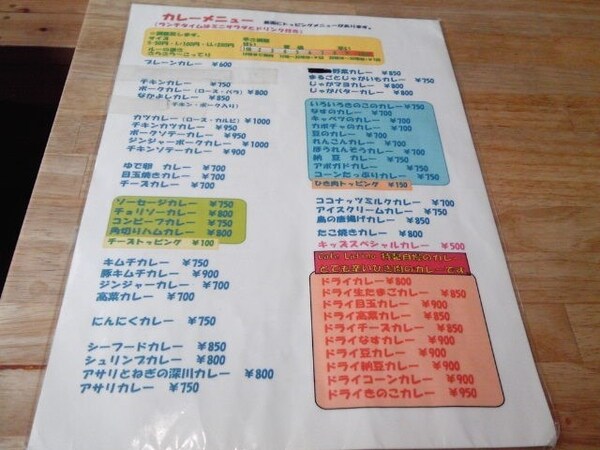 カレーメニュー
裏面にトッピングメニューがあります。
(ランチタイムはミニサラダとドリンク付き)
プレーンカレー ¥600
チキンカレー ¥750
ポークカレー(ロース・バラ) ¥800
なかよしカレー ¥850
(チキン・ポーク入り)
カツカレー(ロース・カルビ) ¥1000
チキンカツカレー ¥950
ポークソテーカレー ¥950
ジンジャーポークカレー ¥1000
チキンソテーカレー ¥900
ゆで卵 カレー ¥700
目玉焼きカレー ¥700
チーズカレー ¥700
ソーセージカレー ¥750
チョリソーカレー ¥800
コンビーフカレー ¥750
角切りハムカレー ¥800
チーズトッピング ¥100
キムチカレー ¥750
豚キムチカレー ¥900
ジンジャーカレー ¥700
高菜カレー ¥700
にんにくカレー ¥750
シーフードカレー ¥850
シュリンプカレー ¥800
アサリとねぎの深川カレー ¥800
アサリカレー ¥750
野菜カレー ¥850
まるごとじゃがいもカレー ¥750
じゃがマヨカレー ¥800
じゃがバターカレー ¥800
いろいろきのこのカレー ¥750
なすのカレー ¥700
キャベツのカレー ¥700
カボチャのカレー ¥700
豆のカレー ¥700
れんこんカレー ¥700
ほうれんそうカレー ¥700
納豆 カレー ¥750
アボガドカレー ¥750
コーンたっぷりカレー ¥750
ひき肉トッピング ¥150
ココナッツミルクカレー ¥700
アイスクリームカレー ¥750
鳥の唐揚げカレー ¥850
たこ焼きカレー ¥800
キッズスペシャルカレー ¥500
特製自家のカレー
とても辛いひき肉のカレーです
ドライカレー ¥800
ドライ生たまごカレー ¥850
ドライ目玉カレー ¥900
ドライ高菜カレー ¥850
ドライチーズカレー ¥850
ドライなすカレー ¥900
ドライ豆カレー ¥900
ドライ納豆カレー ¥900
ドライコーンカレー ¥900
ドライきのこカレー ¥950